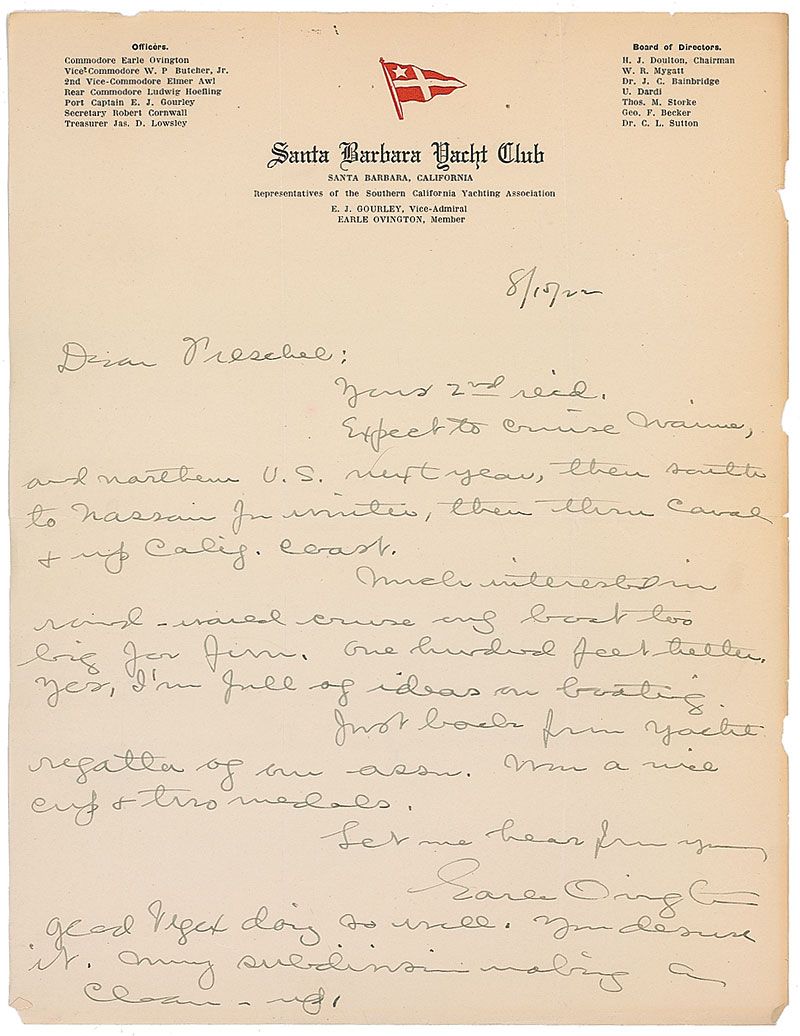 Officers.
Commodore Earle Ovington
Vice-Commodore W. P Butcher, Jr.
2nd Vice-Commodore Elmer Awl
Rear Commodore Ludwig Hoefling
Port Captain E. J. Gourley
Secretary Robert Cornwall
Treasurer Jas. D. Lowsley
Board of Directors.
H. J. Doulton, Chairman
W. R. Mygatt
Dr. J. C. Bainbridge
U. Dardi
Thos. M. Storke
Geo. F. Becker
Dr. C. L. Sutton
Santa Barbara Yacht Club
SANTA BARBARA, CALIFORNIA
Representatives of the Southern California Yachting Association
E. J. GOURLEY, Vice-Admiral
EARLE OVINGTON, Member
8/15/22
Dear
Yours 2nd recd.
Expect to cruise Maine,
and northern U.S. next year, then south
to Nassau for winter, then thru Canal
& up Calif. coast.
Much interested in
cruise
big for fun. One hundred feet better.
Yes, I'm full of ideas on boating.
Just back from yacht
regatta of our assn. Won a nice
cup & two medals.
Let me hear from you
Earle Ovington
Glad doing so well. You deserve
it. My subdivision making a
clean-up.